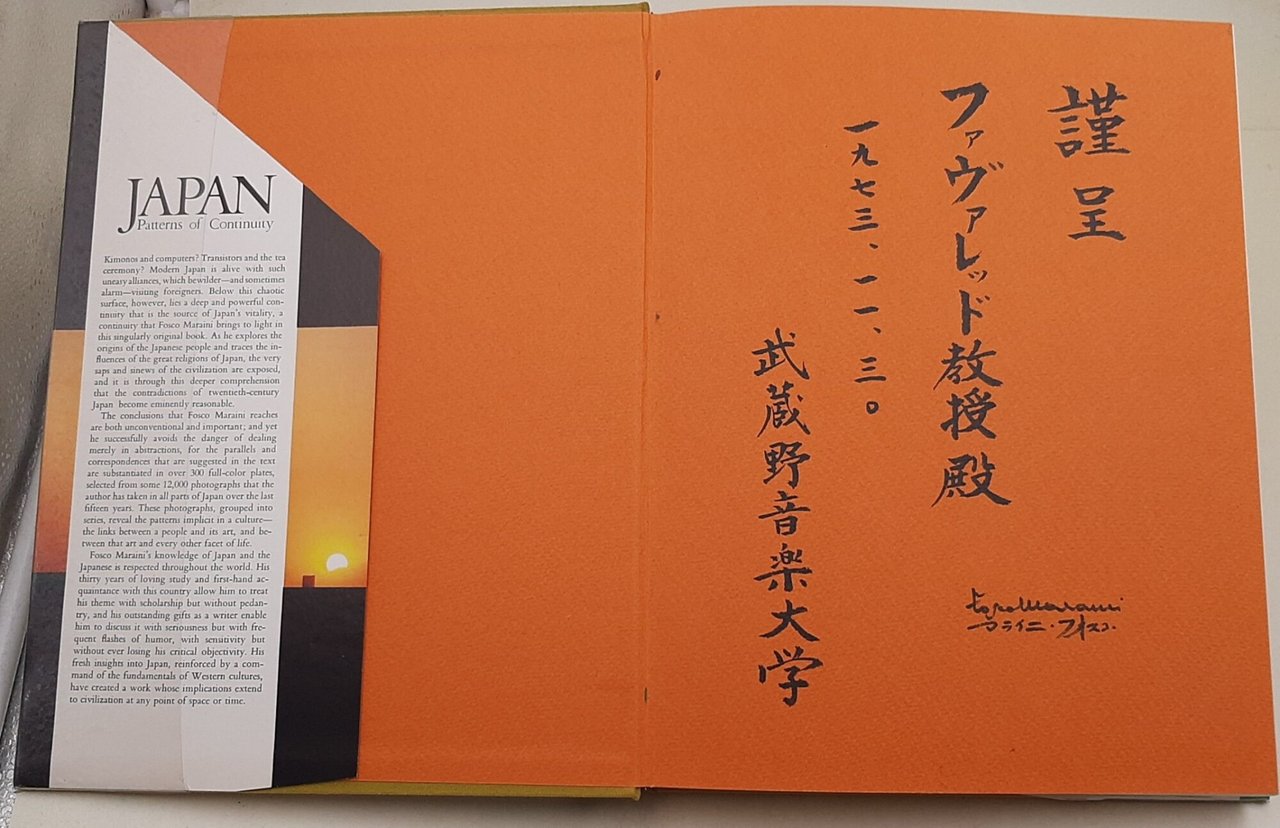 JAPAN
Patterns of Continuity
Kimonos and computers? Transistors and the tea
ceremony? Modern Japan is alive with such
uneasy alliances, which bewilder—and sometimes
alarm—visiting foreigners. Below this chaotic
surface, however, lies a deep and powerful con-
tinuity that is the source of Japan's vitality, a
continuity that Fosco Maraini brings to light in
this singularly original book. As he explores the
origins of the Japanese people and traces the in-
fluences of the great religions of Japan, the very
saps and sinews of the civilization are exposed,
and it is through this deeper comprehension
that the contradictions of twentieth-century
Japan become eminently reasonable.
The conclusions that Fosco Maraini reaches
are both unconventional and important; and yet
he successfully avoids the danger of dealing
merely in abstractions, for the parallels and
correspondences that are suggested in the text
are substantiated in over 300 full-color plates,
selected from some 12,000 photographs that the
author has taken in all parts of Japan over the last
fifteen years. These photographs, grouped into
series, reveal the patterns implicit in a culture—
the links between a people and its art, and be-
tween that art and every other facet of life.
Fosco Maraini's knowledge of Japan and the
Japanese is respected throughout the world. His
thirty years of loving study and first-hand ac-
quaintance with this country allow him to treat
his theme with scholarship but without pedan-
try, and his outstanding gifts as a writer enable
him to discuss it with seriousness but with fre-
quent flashes of humor, with sensitivity but
without ever losing his critical objectivity. His
fresh insights into Japan, reinforced by a com-
mand of the fundamentals of Western cultures,
have created a work whose implications extend
to civilization at any point of space or time.
謹呈
ファヴァレッド教授殿
一九七三、一一、三〇
武蔵野音楽大学
Fosco Maraini
マライニ・フォスコ